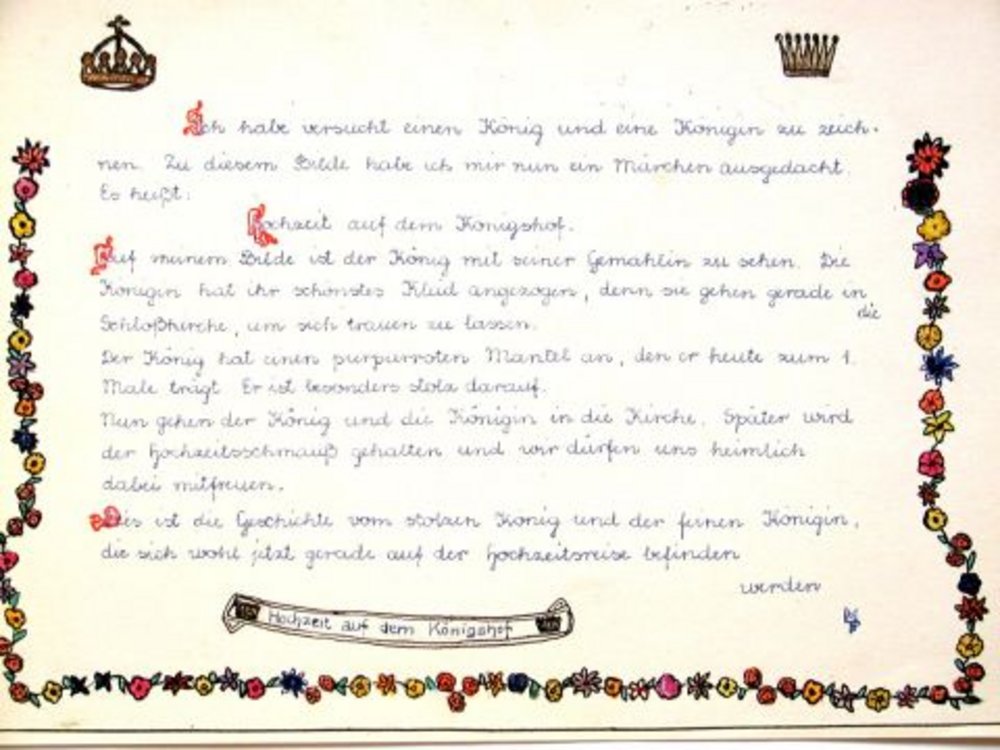 Ich habe versucht einen König und eine Königin zu zeich-
nen. Zu diesem Bilde habe ich mir nun ein Märchen ausgedacht.
Es heißt:
Hochzeit auf dem Königshof.
Auf meinem Bilde ist der König mit seiner Gemahlin zu sehen. Die
Königin hat ihr schönstes Kleid angezogen, denn sie gehen gerade in
die
Schloßkirche, um sich trauen zu lassen.
Der König hat einen purpurroten Mantel an, den er heute zum 1.
Male trägt. Er ist besonders stolz darauf.
Nun gehen der König und die Königin in die Kirche. Später wird
der Hochzeitsschmauß gehalten und wir dürfen uns heimlich
dabei mitfreuen.
Dies ist die Geschichte vom stolzen König und der feinen Königin,
die sich wohl jetzt gerade auf der Hochzeitsreise befinden
werden
Hochzeit auf dem Königshof